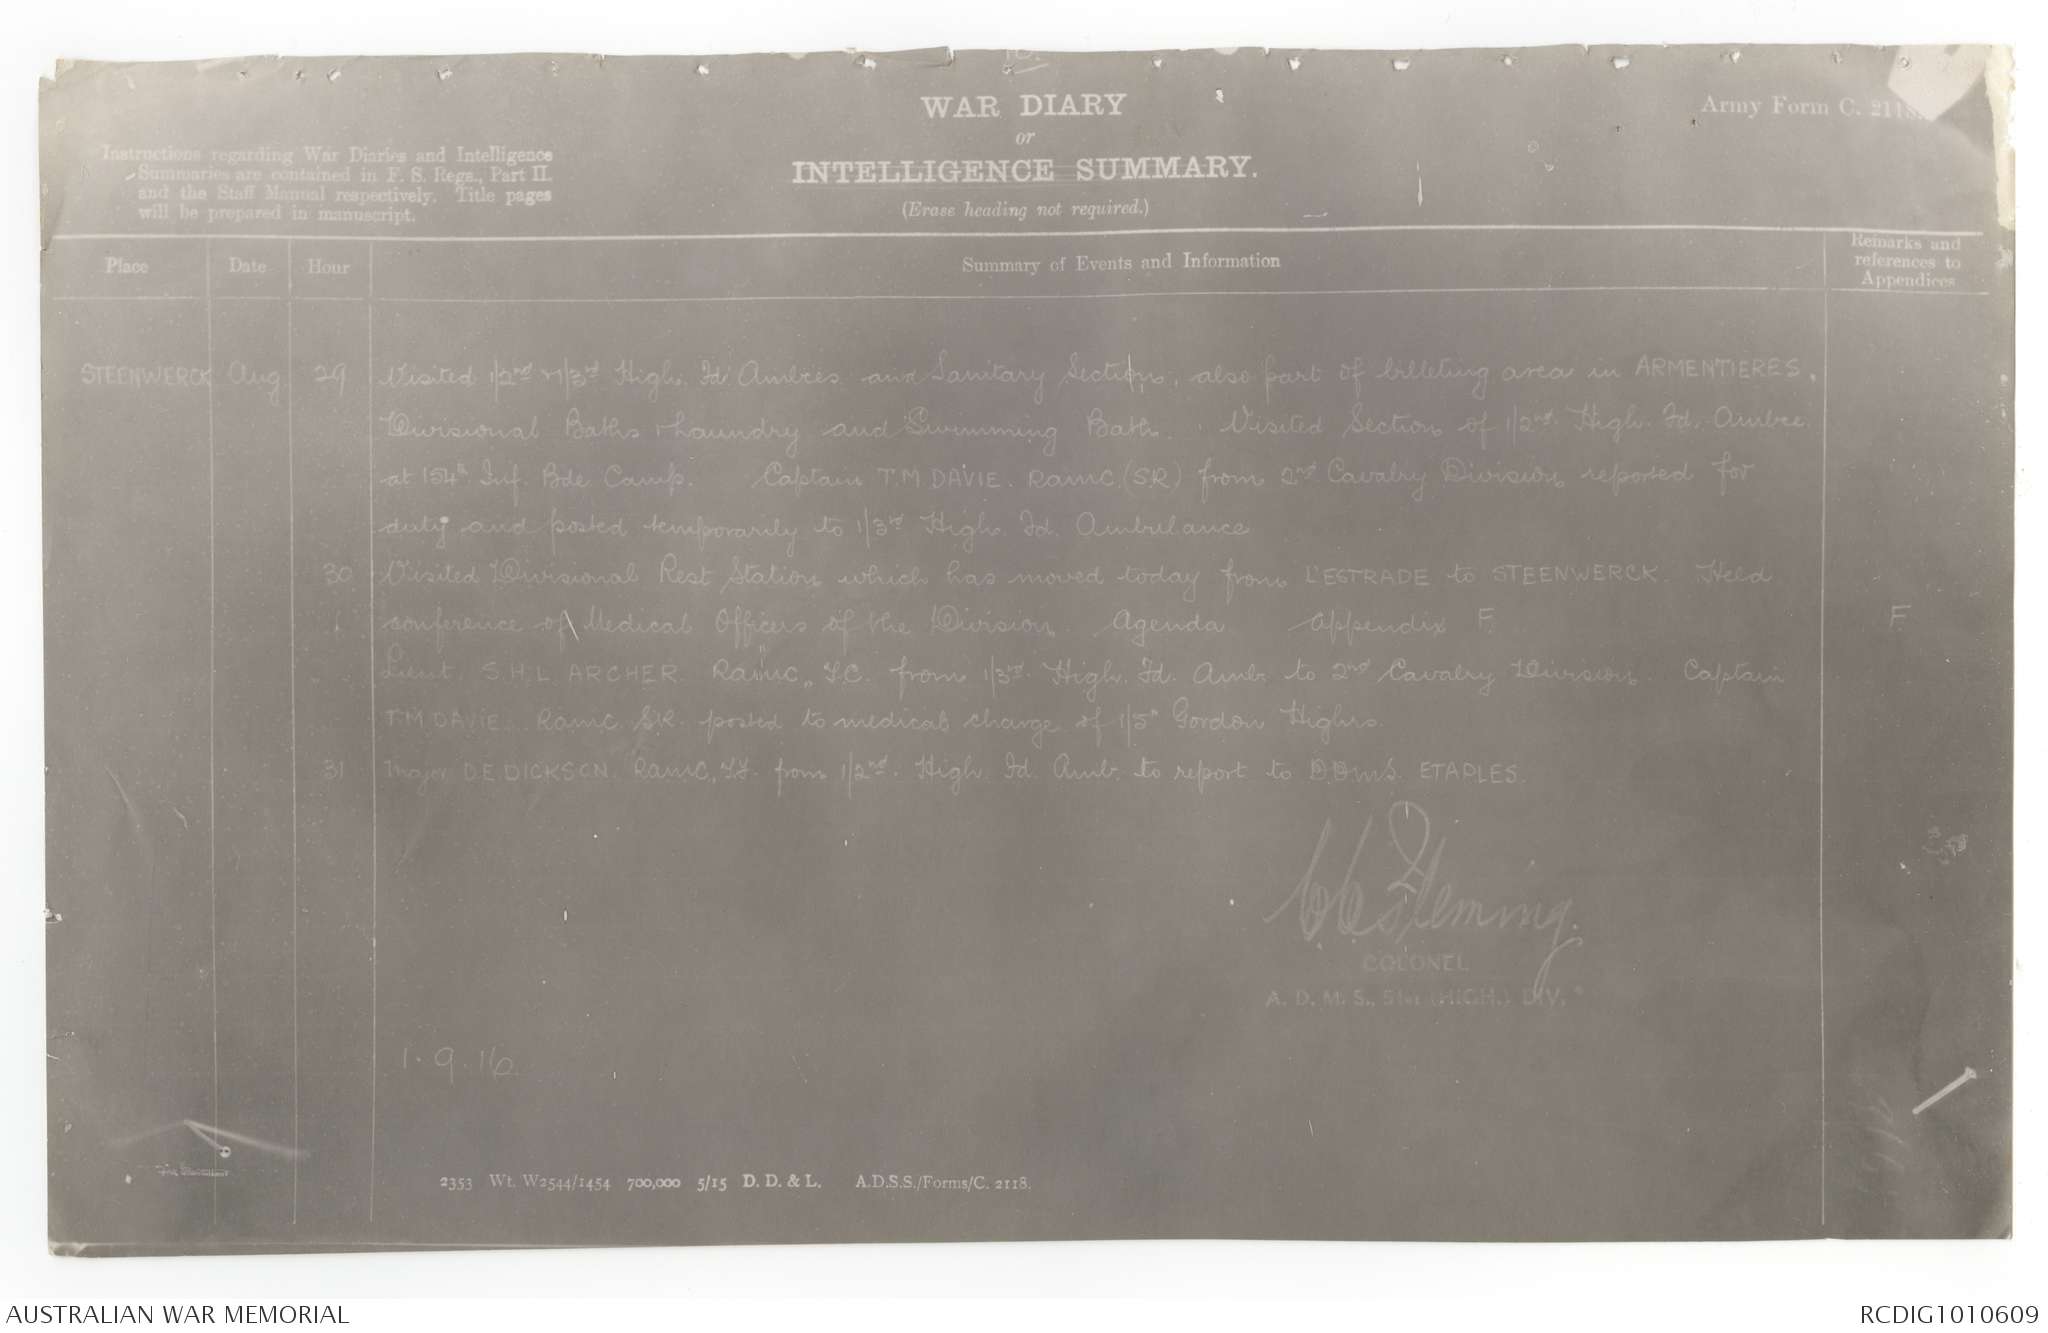 10.
WAR DIARY
or
INTELLIGENCE SUMMARY.
(Erase heading not required.)
Army Form C. 2118.
Instructions regarding War Diaries and Intelligence
Summaries are contained in F. S. Regs., Part II.
and the Staff Manual respectively. Title pages
will be prepared in manuscript.
Place Date Hour Summary of Events and Information Remarks and
references to
Appendices
STEENWERCK Aug 29 Visited 1/2nd & 1/3rd High. Fd Ambces and Sanitary Section, also part of billeting area in ARMENTIERES.
Divisional Baths & Laundry and Swimming Bath. Visited Section of 1/2nd High. Fd. Ambce.
at 154th Inf. Bde Camp. Captain T.M. DAVIE. RAMC.(S.R) from 2nd Cavalry Division reported for
duty and posted temporarily to 1/3rd High. Fd. Ambulance
30 Visited Divisional Rest Station which has moved today from L'ESTRADE to STEENWERCK. Held
conference of Medical Officers of the Division. Agenda Appendix F. F.
Lieut. S.H.L. ARCHER. RAMC., T.C. from 1/3rd High. Fd. Amb. to 2nd Cavalry Division. Captain
T.M. DAVIE. RAMC. S.R. posted to medical charge of 1/5th Gordon Highrs.
31 Major D.E. DICKSON. RAMC., T.F. from 1/2nd High Fd. Amb. to report to D.D.M.S. ETAPLES.
Fleming.
COLONEL
A. D. M. S., 51st (HIGH.) DIV.
1.9.16
2353 Wt. W2544/1454 700,000 5/15 D. D. & L. A.D.S.S./Forms/C. 2118.
AUSTRALIAN WAR MEMORIAL
RCDIG1010609